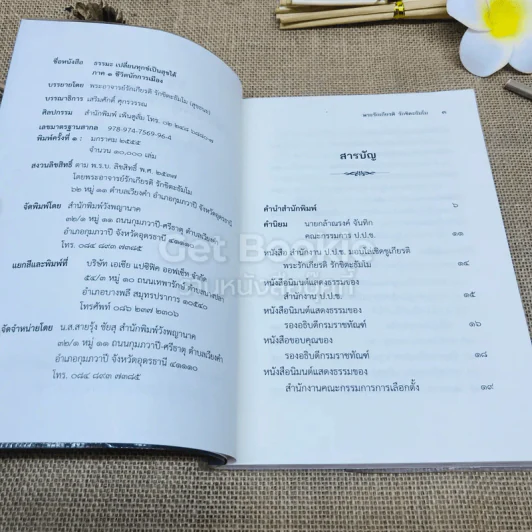 ชื่อหนังสือ ธรรมะ เปลี่ยนทุกข์เป็นสุขได้
ภาค ๑ ชีวิตนักการเมือง
บรรยายโดย พระอาจารย์รักเกียรติ รักขิตะธัมโม (สุขธนะ)
บรรณาธิการ เสริมศักดิ์ ศุภรวรรณ
ศิลปกรรม สำนักพิมพ์ เพ้นสูติ้ม โทร.
เลขมาตรฐานสากล 978-974-7569-96-4
พิมพ์ครั้งที่ ๑ : มกราคม ๒๕๕๕
จำนวน ๑๐,๐๐๐ เล่ม
สงวนลิขสิทธิ์ ตาม พ.ร.บ. ลิขสิทธิ์ พ.ศ. ๒๕๓๗
โดยพระอาจารย์รักเกียรติ รักขิตะธัมโม
๖๒ หมู่ ๑๑ ตำบลเวียงคำ อำเภอกุมภวาปี จังหวัดอุดรธานี
จัดพิมพ์โดย สำนักพิมพ์วังพญานาค
๓๒/๑ หมู่ ๑๑ ถนนกุมภวาปี-ศรีธาตุ ตำบลเวียงคำ
อำเภอกุมภวาปี จังหวัดอุดรธานี ๔๑๑๑๐
โทร. ๐๘๔ ๘๙๓ ๗๓๘๕
แยกสีและพิมพ์ที่ บริษัท เอเชีย แปซิฟิค ออฟเซ็ท จำกัด
๕๔/๓ หมู่ ๑๐ ถนนเทพารักษ์
อำเภอบางพลี สมุทรปราการ ๑๐๕๔๐
โทรศัพท์ ๐๘๖ ๒๓๗ ๒๓๐๖
จัดจำหน่ายโดย น.ส.สายรุ้ง ชัยสุ สำนักพิมพ์วังพญานาค
๓๒/๑ หมู่ ๑๑ ถนนกุมภวาปี-ศรีธาตุ ตำบลเวียงคำ
อำเภอกุมภวาปี จังหวัดอุดรธานี ๔๑๑๑๐
โทร. ๐๘๔ ๘๙๓ ๗๓๘๕
พระรักเกียรติ รักขิตะธัมโม ๓
สารบัญ
คำนำสำนักพิมพ์ ๖
คำนิยม นายกล้าณรงค์ จันทิก
คณะกรรมการ ป.ป.ช. ๑๑
หนังสือ สำนักงาน ป.ป.ช. มอบโล่เชิดชูเกียรติ
พระรักเกียรติ รักขิตะธัมโม ๑๔
หนังสือนิมนต์แสดงธรรมของ
สำนักงาน ป.ป.ช. ๑๕
หนังสือนิมนต์แสดงธรรมของ
รองอธิบดีกรมราชทัณฑ์ ๑๖
หนังสือขอบคุณของ
รองอธิบดีกรมราชทัณฑ์ ๑๘
หนังสือนิมนต์แสดงธรรมของ
สำนักงานคณะกรรมการการเลือกตั้ง ๑๙
Get Bookie